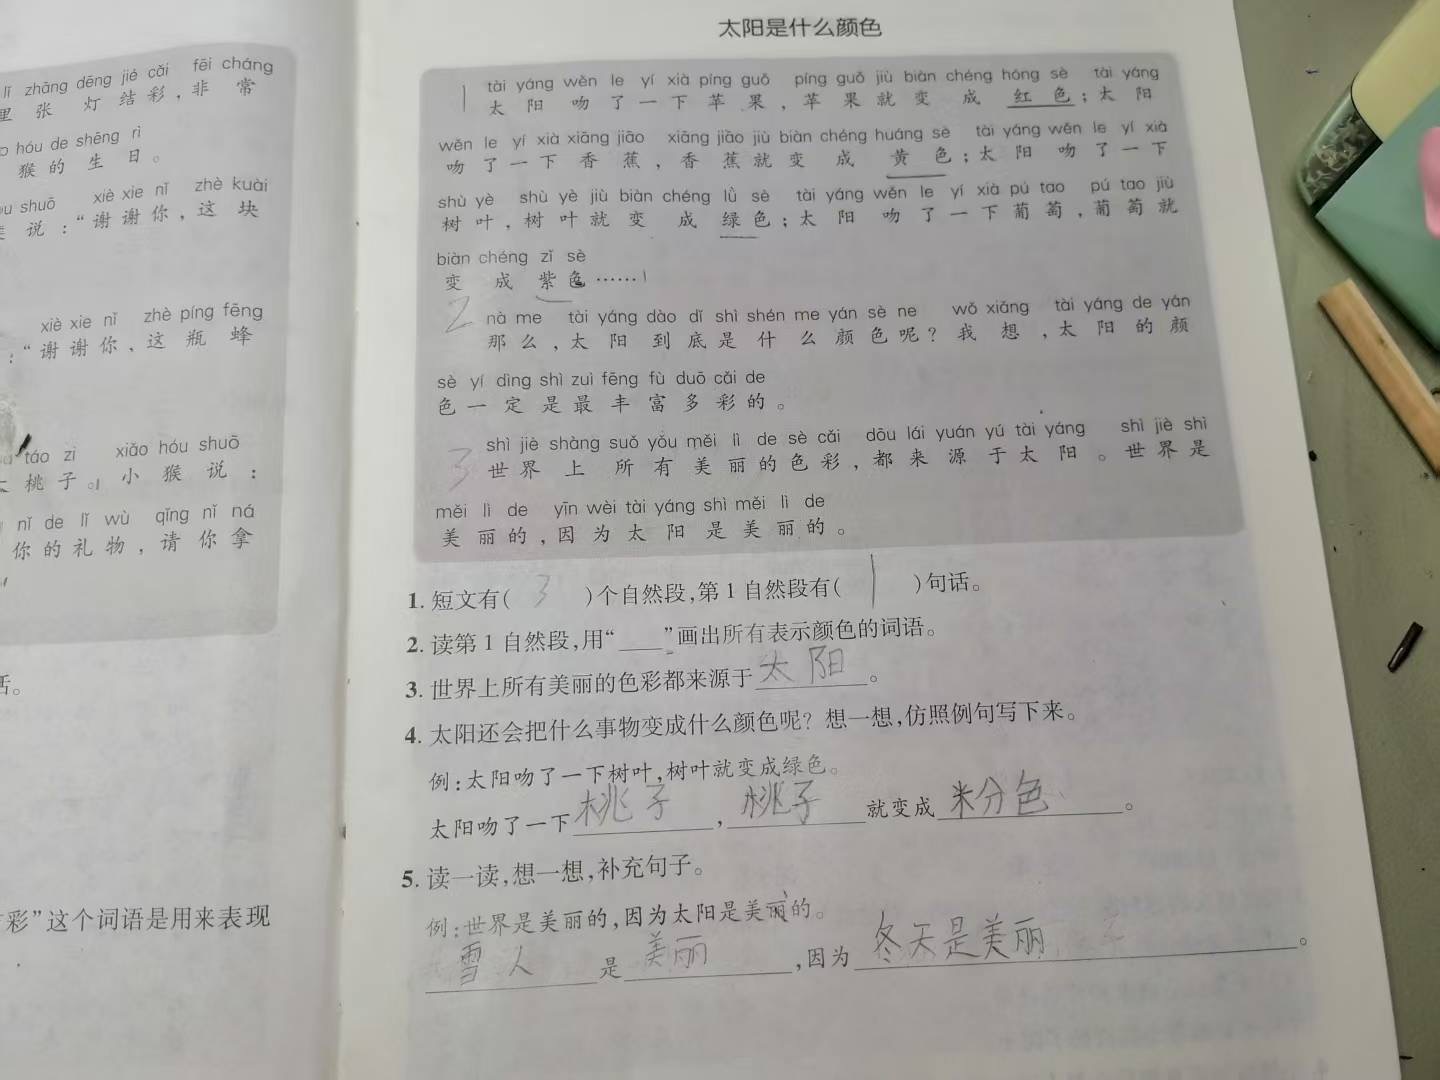 太阳是什么颜色
lǐ zhāng dēng jié cǎi fēi cháng
里 张 灯 结 彩 , 非 常
hóu de shēng rì
猴 的 生 日 。
shuō xiè xie nǐ zhè kuài
说 : “ 谢 谢 你 , 这 块
xiè xie nǐ zhè píng fēng
: “ 谢 谢 你 , 这 瓶 蜂
táo zi xiǎo hóu shuō
桃 子 。 小 猴 说 :
nǐ de lǐ wù qǐng nǐ ná
你 的 礼 物 , 请 你 拿
话。
彩”这个词语是用来表现
1 tài yáng wěn le yí xià píng guǒ píng guǒ jiù biàn chéng hóng sè tài yáng
太 阳 吻 了 一 下 苹 果 , 苹 果 就 变 成 红 色 ; 太 阳
wěn le yí xià xiāng jiāo xiāng jiāo jiù biàn chéng huáng sè tài yáng wěn le yí xià
吻 了 一 下 香 蕉 , 香 蕉 就 变 成 黄 色 ; 太 阳 吻 了 一 下
shù yè shù yè jiù biàn chéng lǜ sè tài yáng wěn le yí xià pú tao pú tao jiù
树 叶 , 树 叶 就 变 成 绿 色 ; 太 阳 吻 了 一 下 葡 萄 , 葡 萄 就
biàn chéng zǐ sè
变 成 紫 色 ……
2 nà me tài yáng dào dǐ shì shén me yán sè ne wǒ xiǎng tài yáng de yán
那 么 , 太 阳 到 底 是 什 么 颜 色 呢 ? 我 想 , 太 阳 的 颜
sè yí dìng shì zuì fēng fù duō cǎi de
色 一 定 是 最 丰 富 多 彩 的 。
3 shì jiè shàng suǒ yǒu měi lì de sè cǎi dōu lái yuán yú tài yáng shì jiè shì
世 界 上 所 有 美 丽 的 色 彩 , 都 来 源 于 太 阳 。 世 界 是
měi lì de yīn wèi tài yáng shì měi lì de
美 丽 的 , 因 为 太 阳 是 美 丽 的 。
1. 短文有( 3 )个自然段,第 1 自然段有( 1 )句话。
2. 读第 1 自然段,用“____”画出所有表示颜色的词语。
3. 世界上所有美丽的色彩都来源于太阳。
4. 太阳还会把什么事物变成什么颜色呢? 想一想,仿照例句写下来。
例:太阳吻了一下树叶,树叶就变成绿色。
太阳吻了一下桃子,桃子就变成米分色。
5. 读一读,想一想,补充句子。
例:世界是美丽的,因为太阳是美丽的。
雪人是美丽,因为冬天是美丽。